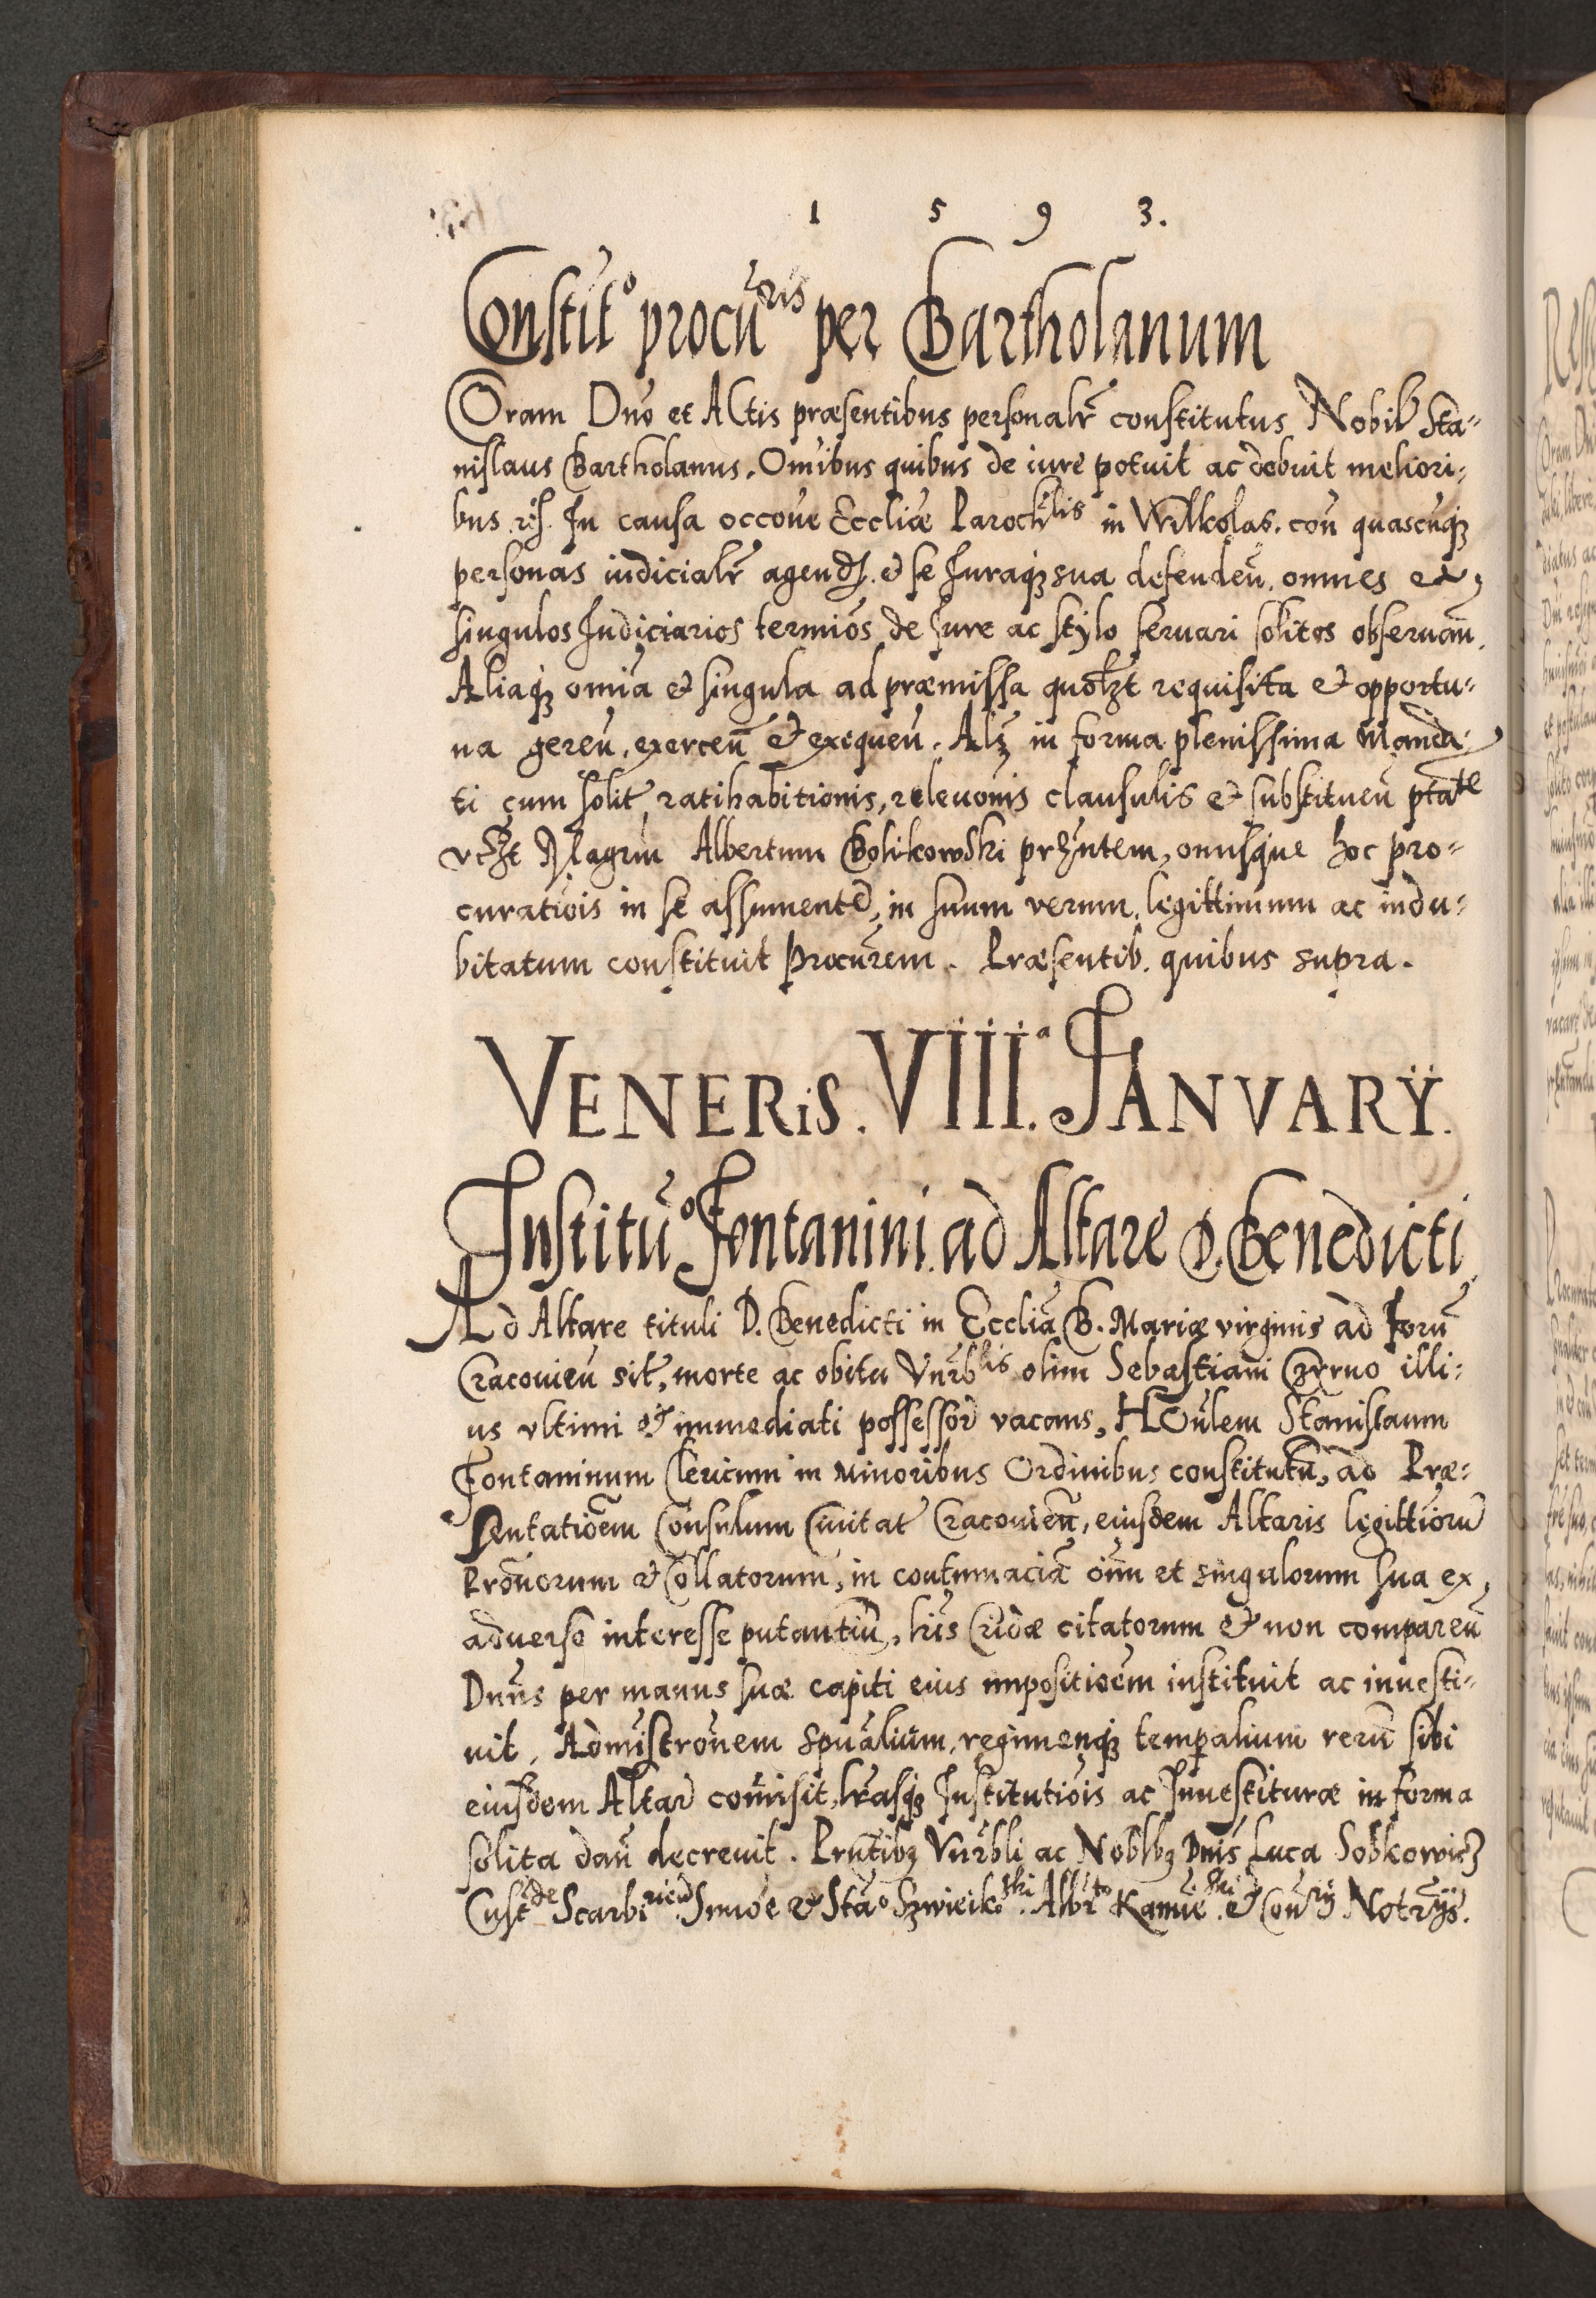 1 5 9 3.
Constit° procūris per Bartholanum
Coram Dno et Actis præsentibus personalr constitutus Nobil Sta=
nislaus Bartholanus. Omibus quibus de iure potuit ac debuit meliori=
bus In causa occone Eccliæ Parochlis in Wilkolas. con quascuqȝ
personas iudicialr agend. & se Iuraqȝ sua defenden. omnes et
singulos Iudiciarios termios de Iure ac stylo seruari solitos obseruan.
Aliaqȝ omia & singula ad præmissa quolzt requisita & opportu=
na geren, exercen & exequen. Alȝ in forma plenissima Manda=
ti cum solit ratihabitionis, releuonis clausulis & substituen ptate
vczt Magrm Albertum Bolikowski przntem, onusque hoc pro=
curatiois in se assumente, in suum verum, legittimum ac indu=
bitatum constituit Procurem. Præsentib. quibus supra.
VENERIS. VIII.ª IANVARŸ.
Institu° Fontanini ad Altare D. Benedicti
Ad Altare tituli D. Benedicti in Ecclia B. Mariæ virginis ad Foru
Cracouien sit, morte ac obitu Vnrblis olim Sebastiani Czyrno illi=
us vltimi & immediati possessor vacans, HOnlem Stanislaum
Fontaninum Clericum in Minoribus Ordinibus constitutu, ad Præ=
sentatioem Consulum Ciuitat Cracouien, eiusdem Altaris legittioru
Pronorum & Collatorum, in contumacia oim et singulorum sua ex
aduerso interesse putantiu, hris Cridæ citatorum & non comparen
Dnus per manus suæ capiti eius impositioem instituit ac inuesti=
uit, Admistronem spualium, regimenqȝ temporalium reru sibi
eiusdem Altar comisit, lrasqȝ Institutiois ac Inuestituræ in forma
solita dan decreuit. Prntibȝ Vnrbli ac Noblbȝ Dnis Luca Sobkowicz
Custde Scarbiriens Simoe & Sta° Szwieikoski. Albrto Kamienski & Conrij Notrijs.